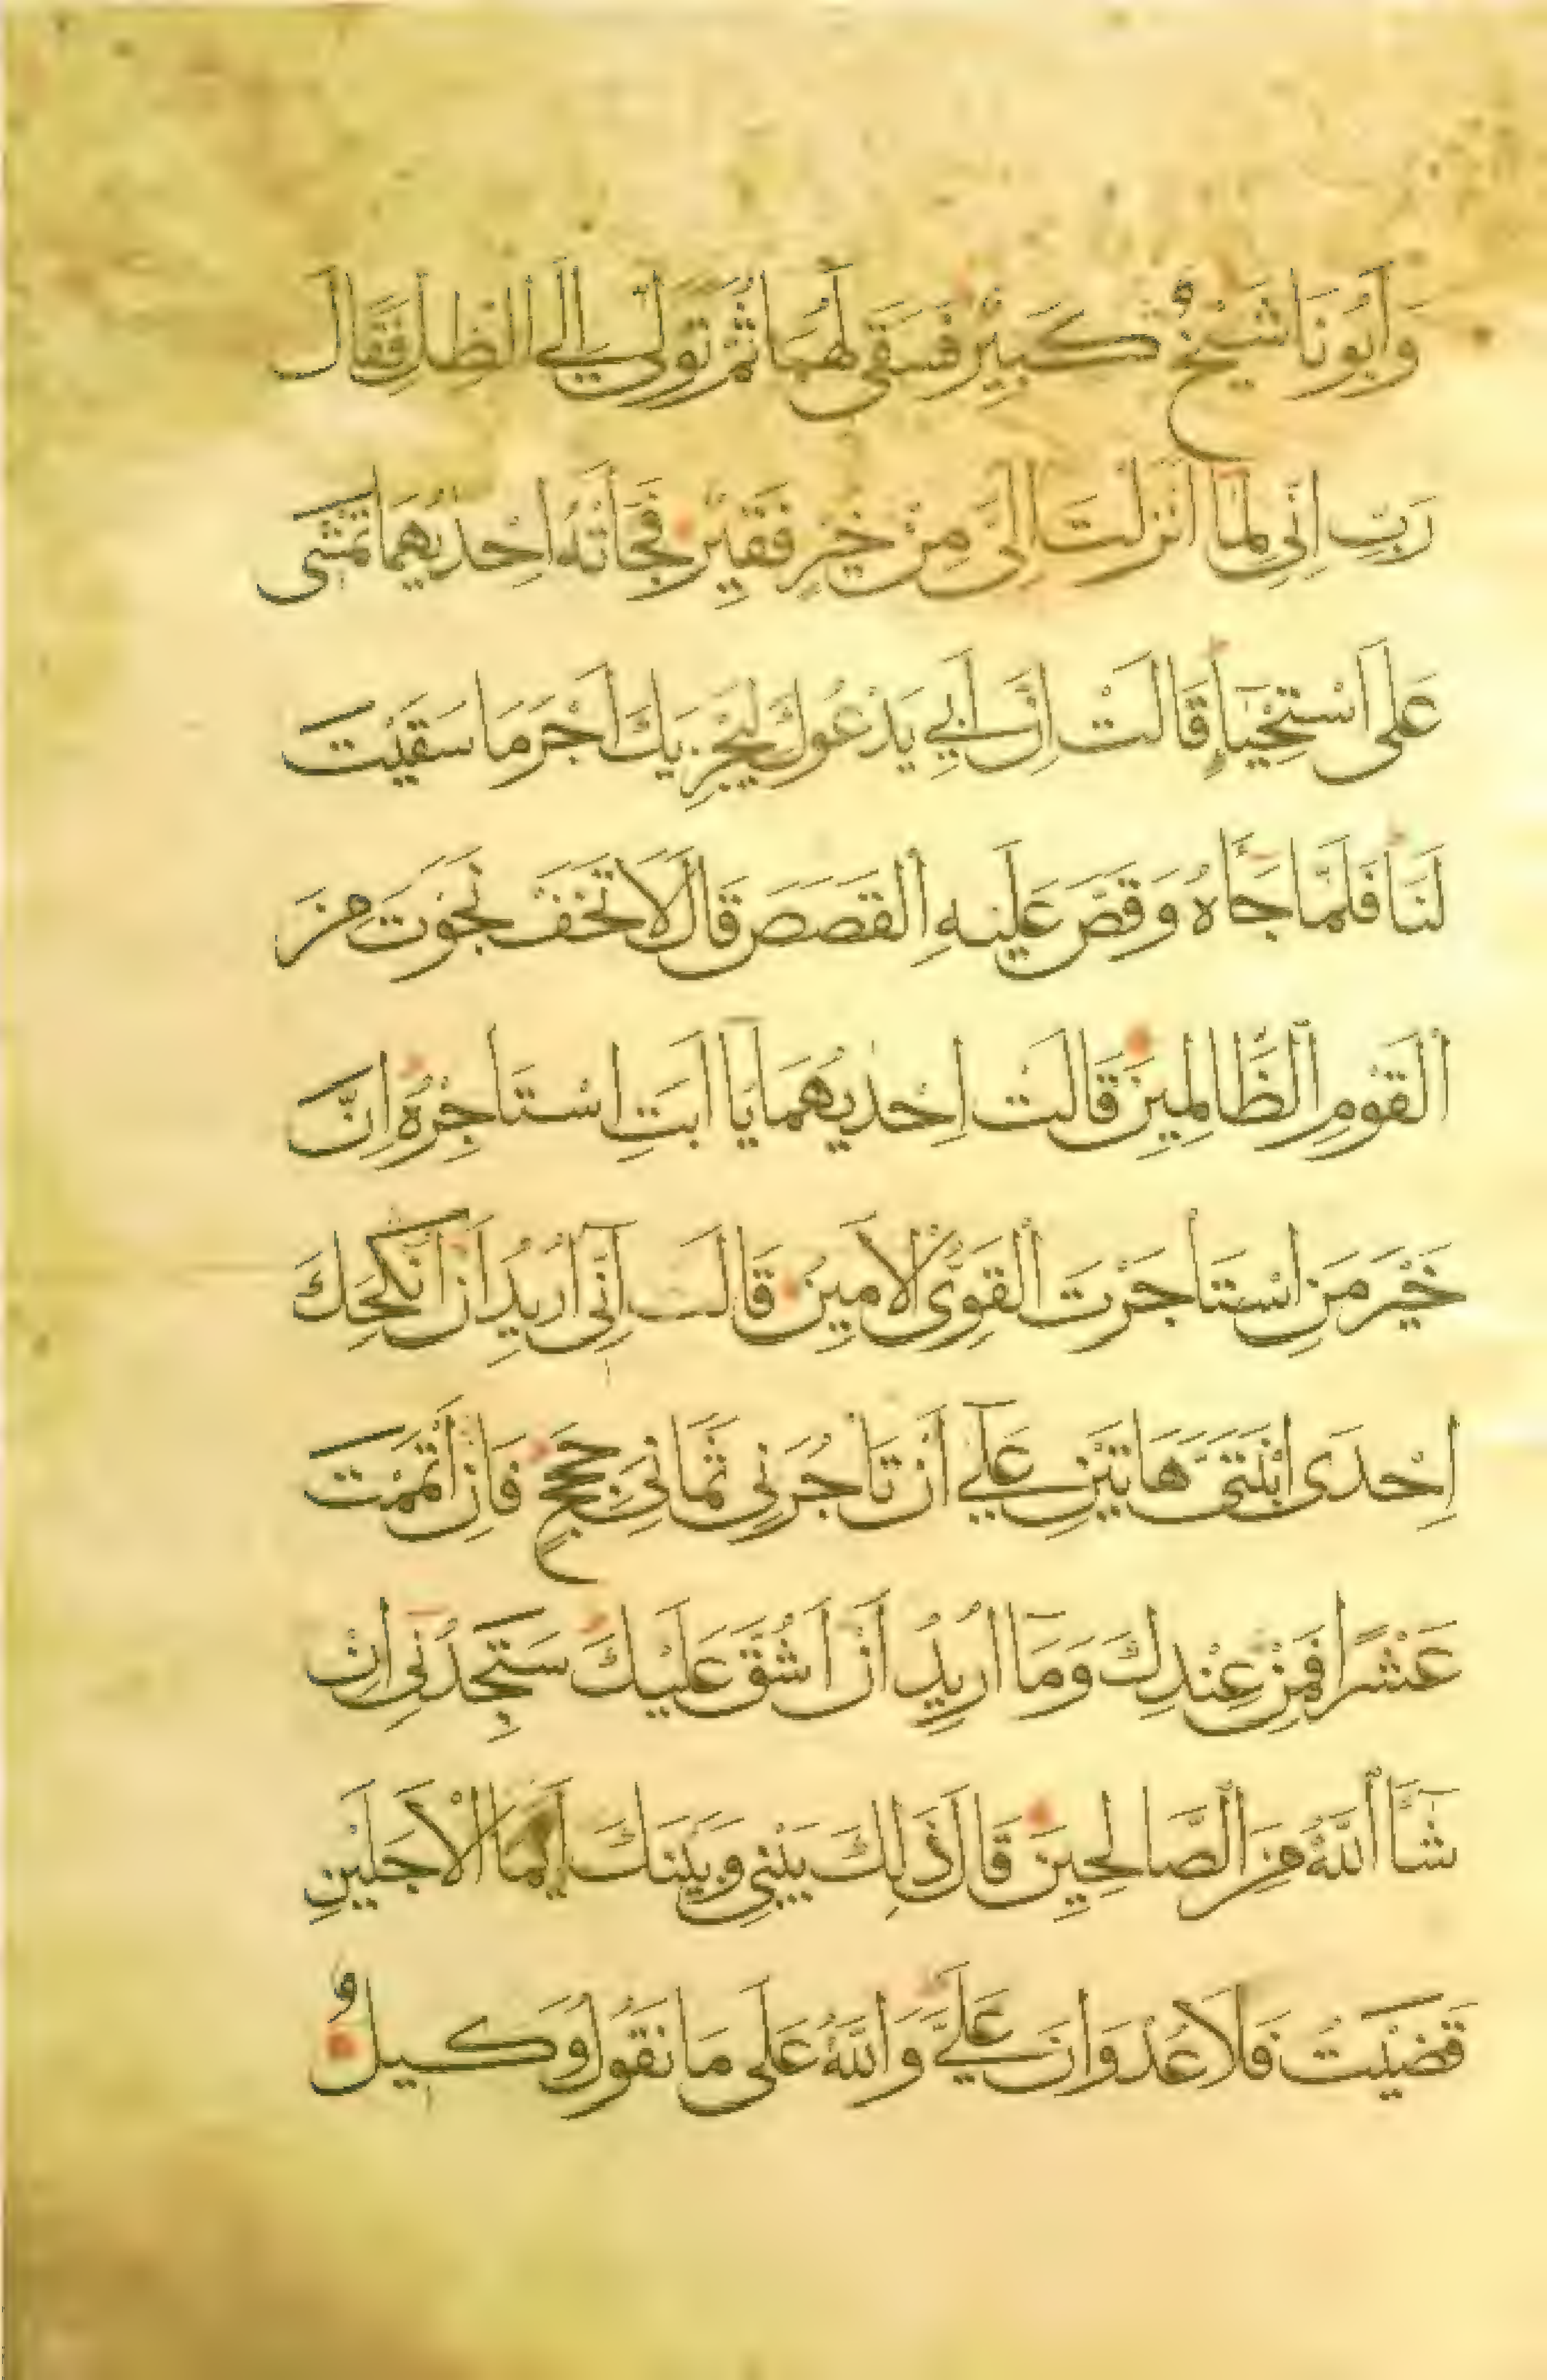 وَأَبُونَا شَيْخٌ كَبِيرٌ فَسَقَى لَهُمَا ثُمَّ تَوَلَّى إِلَى الظِّلِّ فَقَالَ
رَبِّ إِنِّي لِمَا أَنْزَلْتَ إِلَيَّ مِنْ خَيْرٍ فَقِيرٌ فَجَاَتْهُ إِحْدٰيهُمَا تَمْشِى
عَلَى اسْتِحْيَاءٍ قَالَتْ إِنَّ أَبِي يَدْعُوكَ لِيَجْزِيَكَ أَجْرَ مَا سَقَيْتَ
لَنَا فَلَمَّا جَاَهُ وَقَصَّ عَلَيْهِ الْقَصَصَ قَالَ لَا تَخَفْ نَجَوْتَ مِنَ
الْقَوْمِ الظَّالِمِينَ قَالَتْ إِحْدٰيهُمَا يَا أَبَتِ اسْتَاجِرْهُ إِنَّ
خَيْرَ مَنِ اسْتَأجَرْتَ الْقَوِىُّ الْأَمِينُ قَالَ إِنِّى أُرِيدُ أَنْ أُنْكِحَكَ
إِحْدَى ابْنَتَىَّ هَاتَيْنِ عَلَى أَنْ تَأجُرَنِى ثَمَانِىَ حِجَجٍ فَإِنْ أَتْمَمْتَ
عَشْرًا فَمِنْ عِنْدِكَ وَمَا أُرِيدُ أَنْ أَشُقَّ عَلَيْكَ سَتَجِدُنِى إِنْ
شَاَ اللَّهُ مِنَ الصَّالِحِينَ قَالَ ذَلِكَ بَيْنِى وَبَيْنَكَ أَيَّمَا الْأَجَلَيْنِ
قَضَيْتُ فَلَا عُدْوَانَ عَلَىَّ وَاللَّهُ عَلَى مَا نَقُولُ وَكِيلٌ